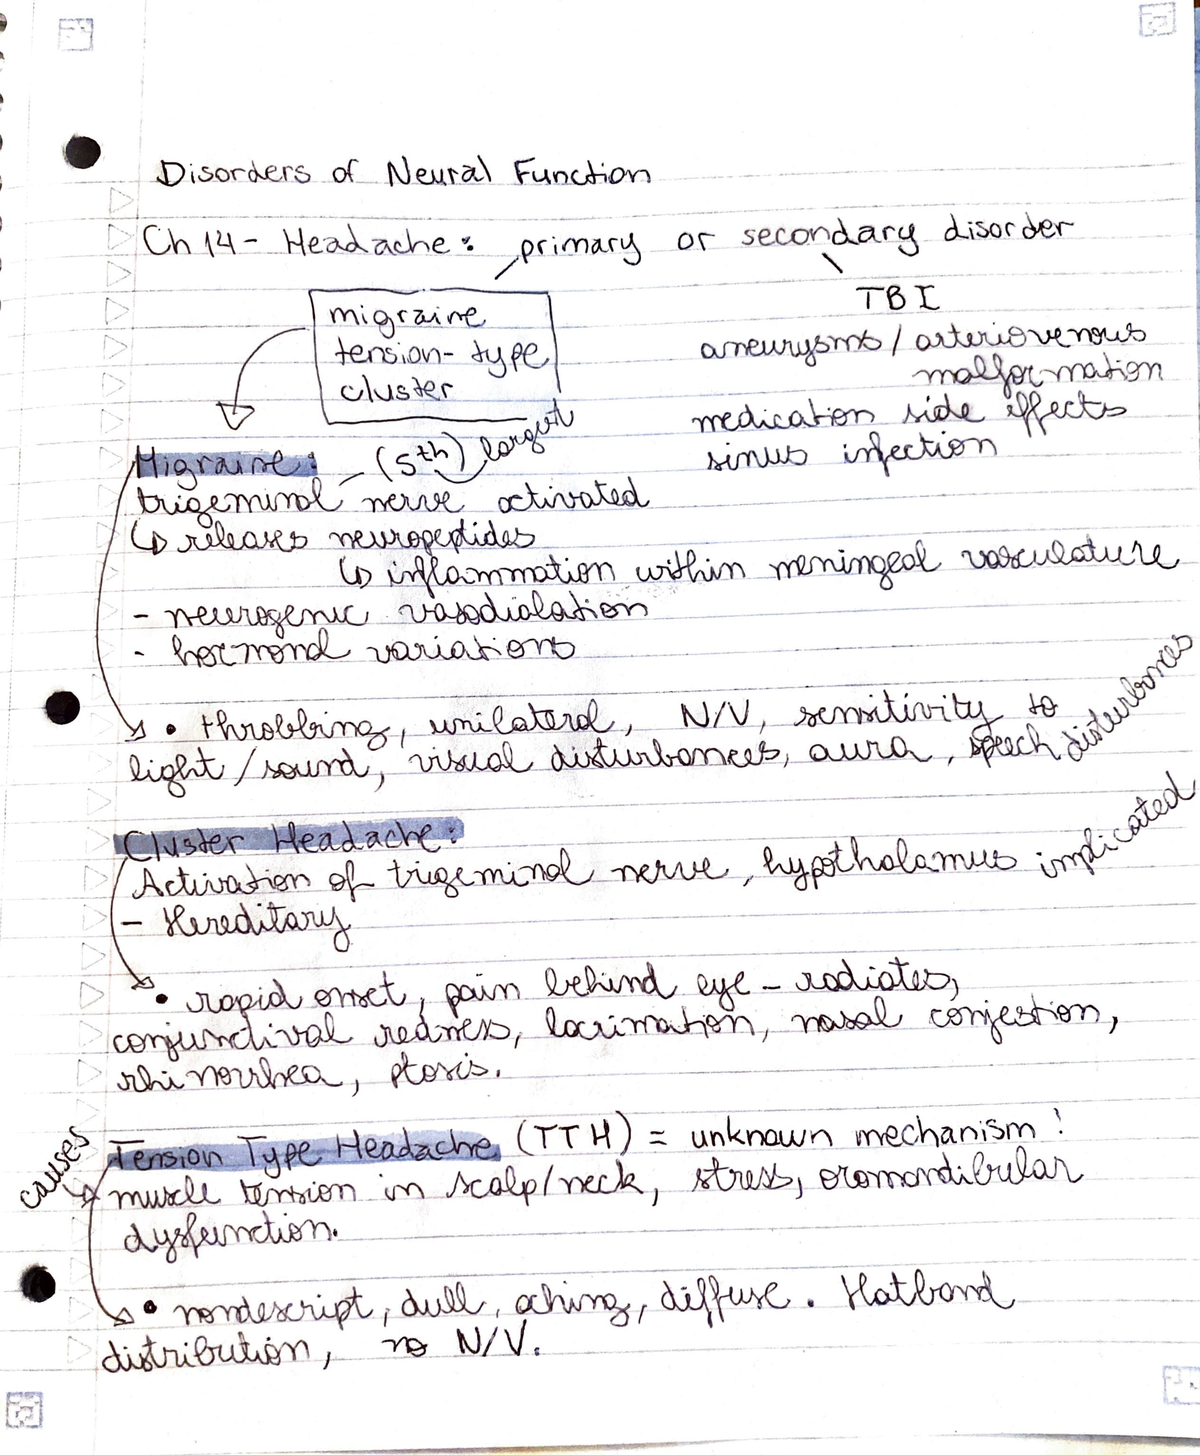 Disorders of Neural Function
Ch 14 - Headache: primary or secondary disorder
migraine
tension-type
cluster
TBI
aneurysms / arteriovenous
malformation
medication side effects
sinus infection
Migraine: (5th) largest
trigeminal nerve activated
↳ releases neuropeptides
↳ inflammation within meningeal vasculature
- neurogenic vasodialation
- hormonal variations
• throbbing, unilateral, N/V, sensitivity to
light/sound, visual disturbances, aura, speech disturbances
Cluster Headache:
Activation of trigeminal nerve, hypothalamus implicated
- Hereditary
• rapid onset, pain behind eye - radiates,
conjunctival redness, lacrimation, nasal conjestion,
rhinorrhea, ptosis.
Tension Type Headache (TTH) = unknown mechanism!
causes
muscle tension in scalp/neck, stress, oromandibular
dysfunction.
• nondescript, dull, aching, diffuse. Hatband
distribution, no N/V.